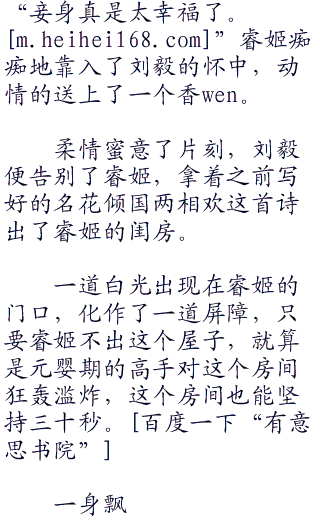 “妾身真是太幸福了。
[m.heihei168.com]”睿姬痴
痴地靠入了刘毅的怀中，动
情的送上了一个香wen。
柔情蜜意了片刻，刘毅
便告别了睿姬，拿着之前写
好的名花倾国两相欢这首诗
出了睿姬的闺房。
一道白光出现在睿姬的
门口，化作了一道屏障，只
要睿姬不出这个屋子，就算
是元婴期的高手对这个房间
狂轰滥炸，这个房间也能坚
持三十秒。[百度一下“有意
思书院”]
一身飘